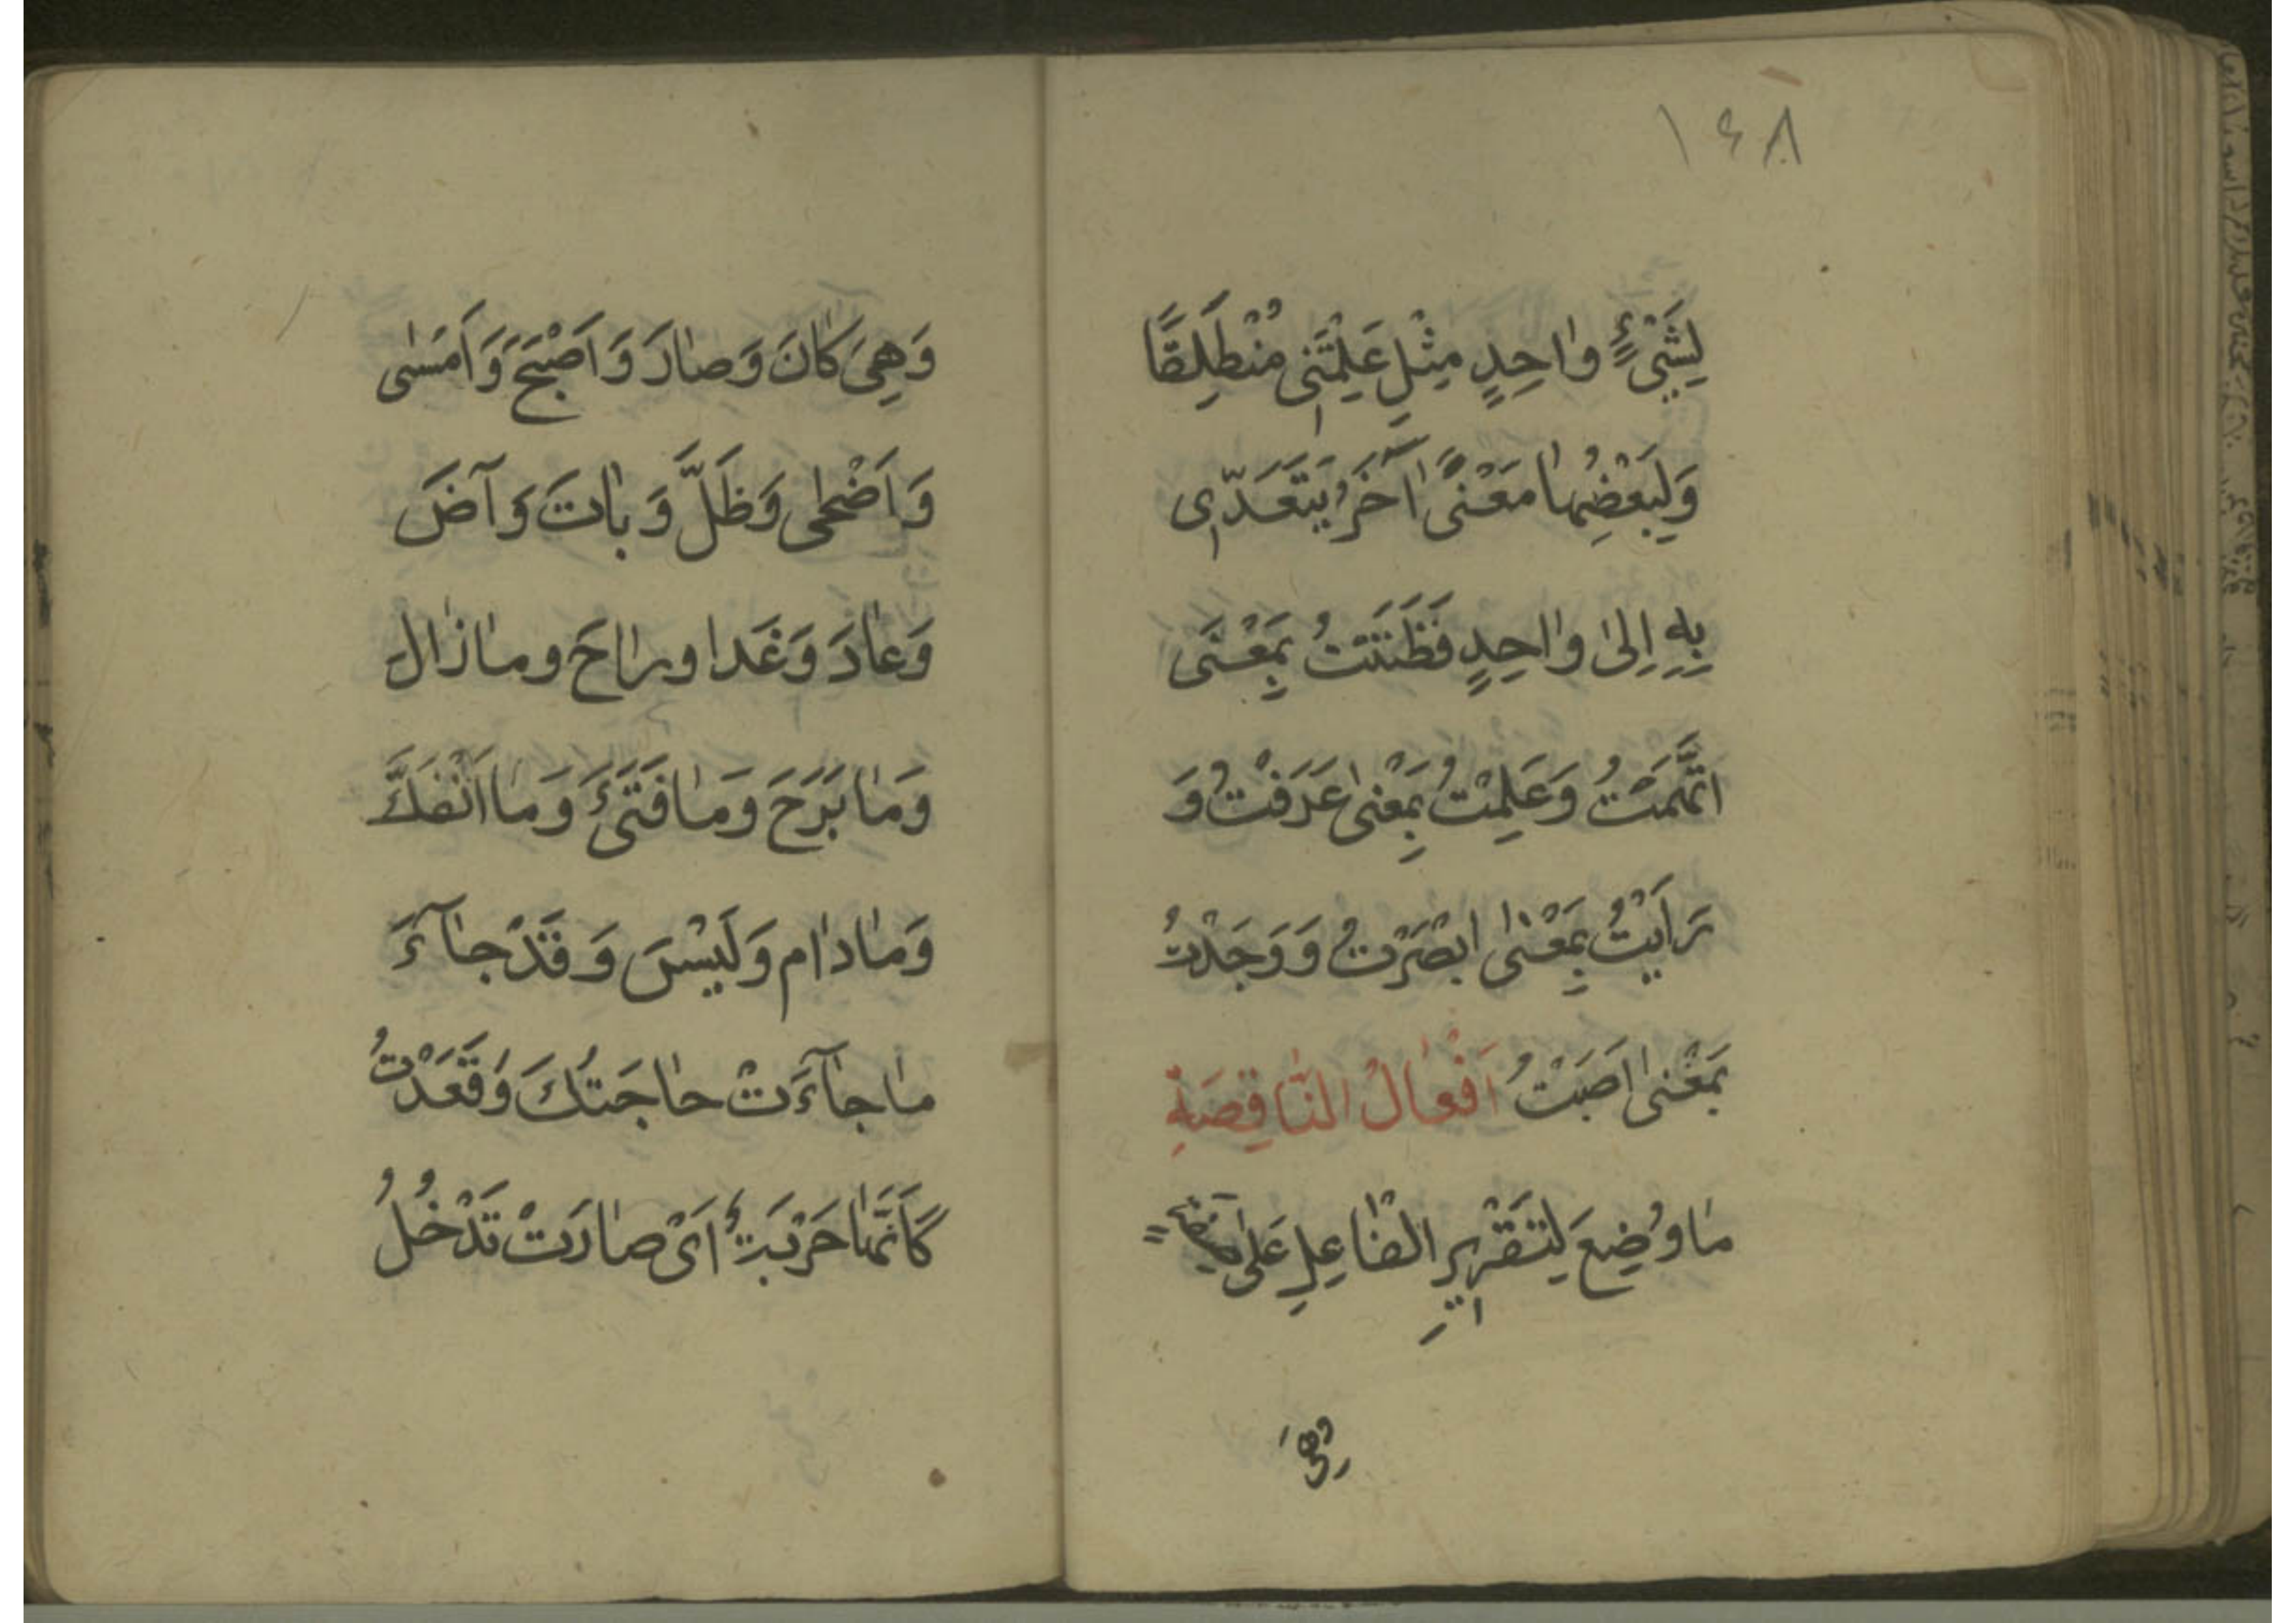 ١٤٨
لِشَيْءٍ وٰاحِدٍ مِثْلِ عَلِمْتَنِي مُنْطَلِقًا
وَلِبَعْضِهٰا مَعْنًى اٰخَرُ يَتَعَدّٰى
بِهِ اِلىٰ وٰاحِدٍ فَظَنَنْتُ بِمَعْنَى
اتَّهَمْتُ وَعَلِمْتُ بِمَعْنىٰ عَرَفْتُ وَ
رَاَيْتُ بِمَعْنىٰ ابْصَرْتُ وَوَجَدْتُ
بِمَعْنىٰ اَصَبْتُ اَفْعٰالُ النّٰاقِصَةِ
مٰا وُضِعَ لِتَقْرِيرِ الْفٰاعِلِ عَلىٰ صفة
وَهِيَ
وَهِيَ كٰانَ وَصٰارَ وَاَصْبَحَ وَاَمْسٰى
وَاَضْحٰى وَظَلَّ وَبٰاتَ وَآضَ
وَعٰادَ وَغَدٰا وراٰحَ ومٰا زٰالَ
وَمٰا بَرَحَ وَمٰا فَتَئَ وَمٰا اَنْفَكَّ
وَمٰا دٰام وَلَيْسَ وَقَدْ جٰآءَ
مٰا جٰآءَتْ حٰاجَتُكَ وَقَعَدْتُ
كَاَنَّمٰا حَرْبَةٌ اَىْ صٰارَتْ تَدْخُلُ